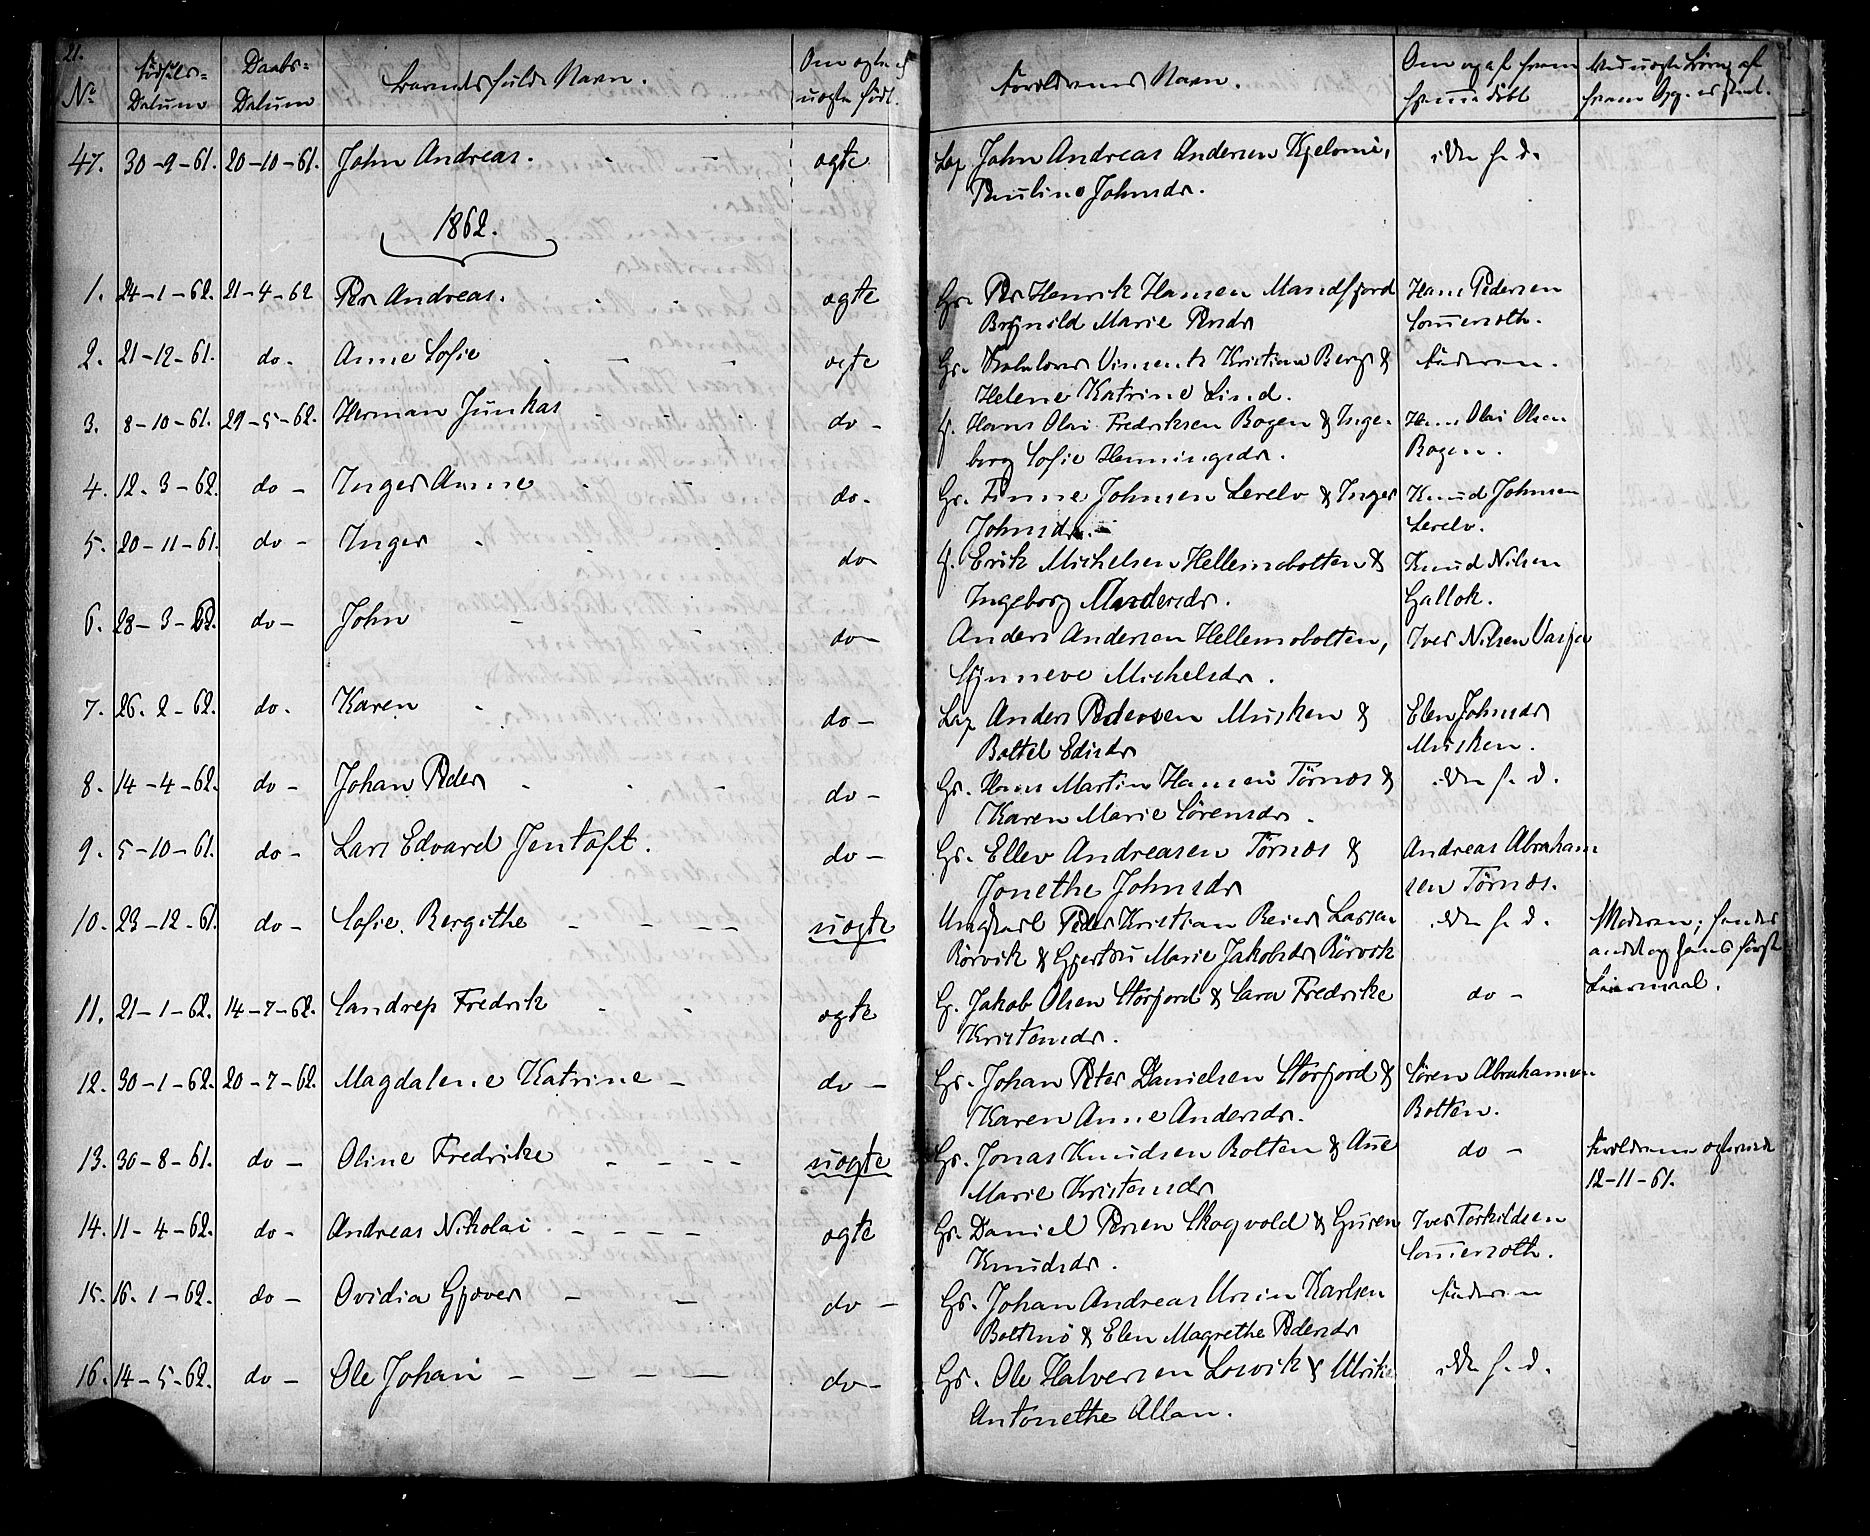 21.
No Fødsels-Datum Daabs-Datum Barnets fulde Navn. Om ægte el uægte født. Forældrenes Navn. Om og af hvem hjemmedøbt Ved uægte Børn af
47. 30-9-61. 20-10-61. John Andreas. ægte Lap John Andreas Andersen Kjelomi, ikke h. d.
Pauline Johnsdr.
1862.
1. 24-1-62. 21-4-62 Per Andreas. ægte Gr. Per Henrik Hansen Mandfjord Hans Pedersen
Brynild Marie Persdr Sommerseth.
2. 21-12-61. do. Anne Sofie ægte Gr. Vincents Kristian Berg & Faderen.
Helene Katrine Lind.
3. 8-10-61. 29-5-62. Herman Junkas do - G. Hans Olai Fredriksen Bogen & Inge- Hans Olai Olsen
borg Sofie Henningsdr. Bogen.
4. 12-3-62. do - Inger Anne do. Gr. Finne Johnsen Lerelv & Inger Knud Johnsen
Johnsdr. Lerelv.
5. 20-11-61. do - Inger do G. Erik Michelsen Hellemobotten & Knud Nilsen
Ingeborg Mardersdr. Gallok.
6. 28-3-62. do - John do - Anders Andersen Hellemobotten, Iver Nilsen
Synneve Michelsdr.
7. 26-2-62. do. Karen do - Lap Anders Pedersen Musken & Elen Johnsdr
Boltel Edisdr Musken.
8. 14-4-62. do - Johan Peder do - Gr. Hans Martin Hansen Törnæs & ikke h. d.
Karen Marie Sörensdr.
9. 5-10-61. do - Lars Edvard Jentoft. do - Gr. Ellev Andreasen Törnæs & Andreas Abraham
Jonethe Johnsdr sen Törnæs.
10. 23-12-61 do - Sofie Bergithe uægte Ungkarl Peder Kristian Beier Larsen ikke h. d. Moderen; hendes
Rörvik & Gjertru Marie Jakobsdr Rörvik andet og hans første
Leiermaal.
11. 21-1-62. 14-7-62. Sandrep Fredrik ægte G. Jakob Olsen Storfjord & Sara Fredrike do -
Kristensdr.
12. 30-1-62. 20-7-62. Magdalene Katrine - do - Gr. Johan Peter Danielsen Storfjord & Sören Abrahamsen
Karen Anne Andersdr. Botten.
13. 30-8-61. do - Oline Fredrike uægte Gr. Jonas Knudsen Botten & Ane do - Forældrene ægteviet
Marie Kristensdr 12-11-61.
14. 11-4-62. do - Andreas Nikolai ægte Gr. Daniel Persen Skogvold & Guren Iver Torkildsen
Knudsdr. Sommerseth.
15. 16-1-62. do - Ovidia Gjæver do - Gr. Johan Andreas Ursin Karlsen Faderen
Boltnö & Elen Magrethe Pedersdr
16. 14-5-62. do - Ole Johan do - Gr. Ole Halversen Losvik & Ulrike ikke h. d.
Antonethe Allan.